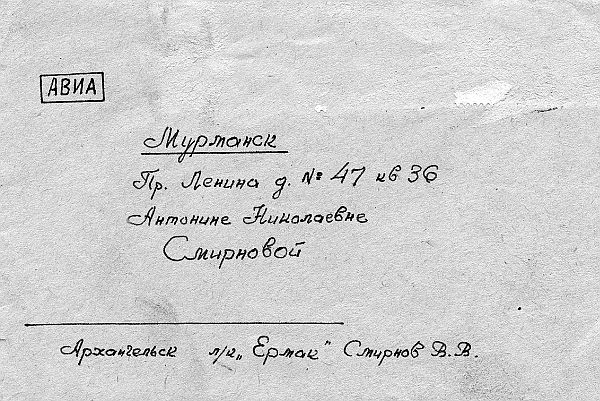 АВИА
Мурманск
Пр. Ленина д. № 47 кв 36
Антонине Николаевне
Смирновой
Архангельск л/к „Ермак" Смирнов В.В.